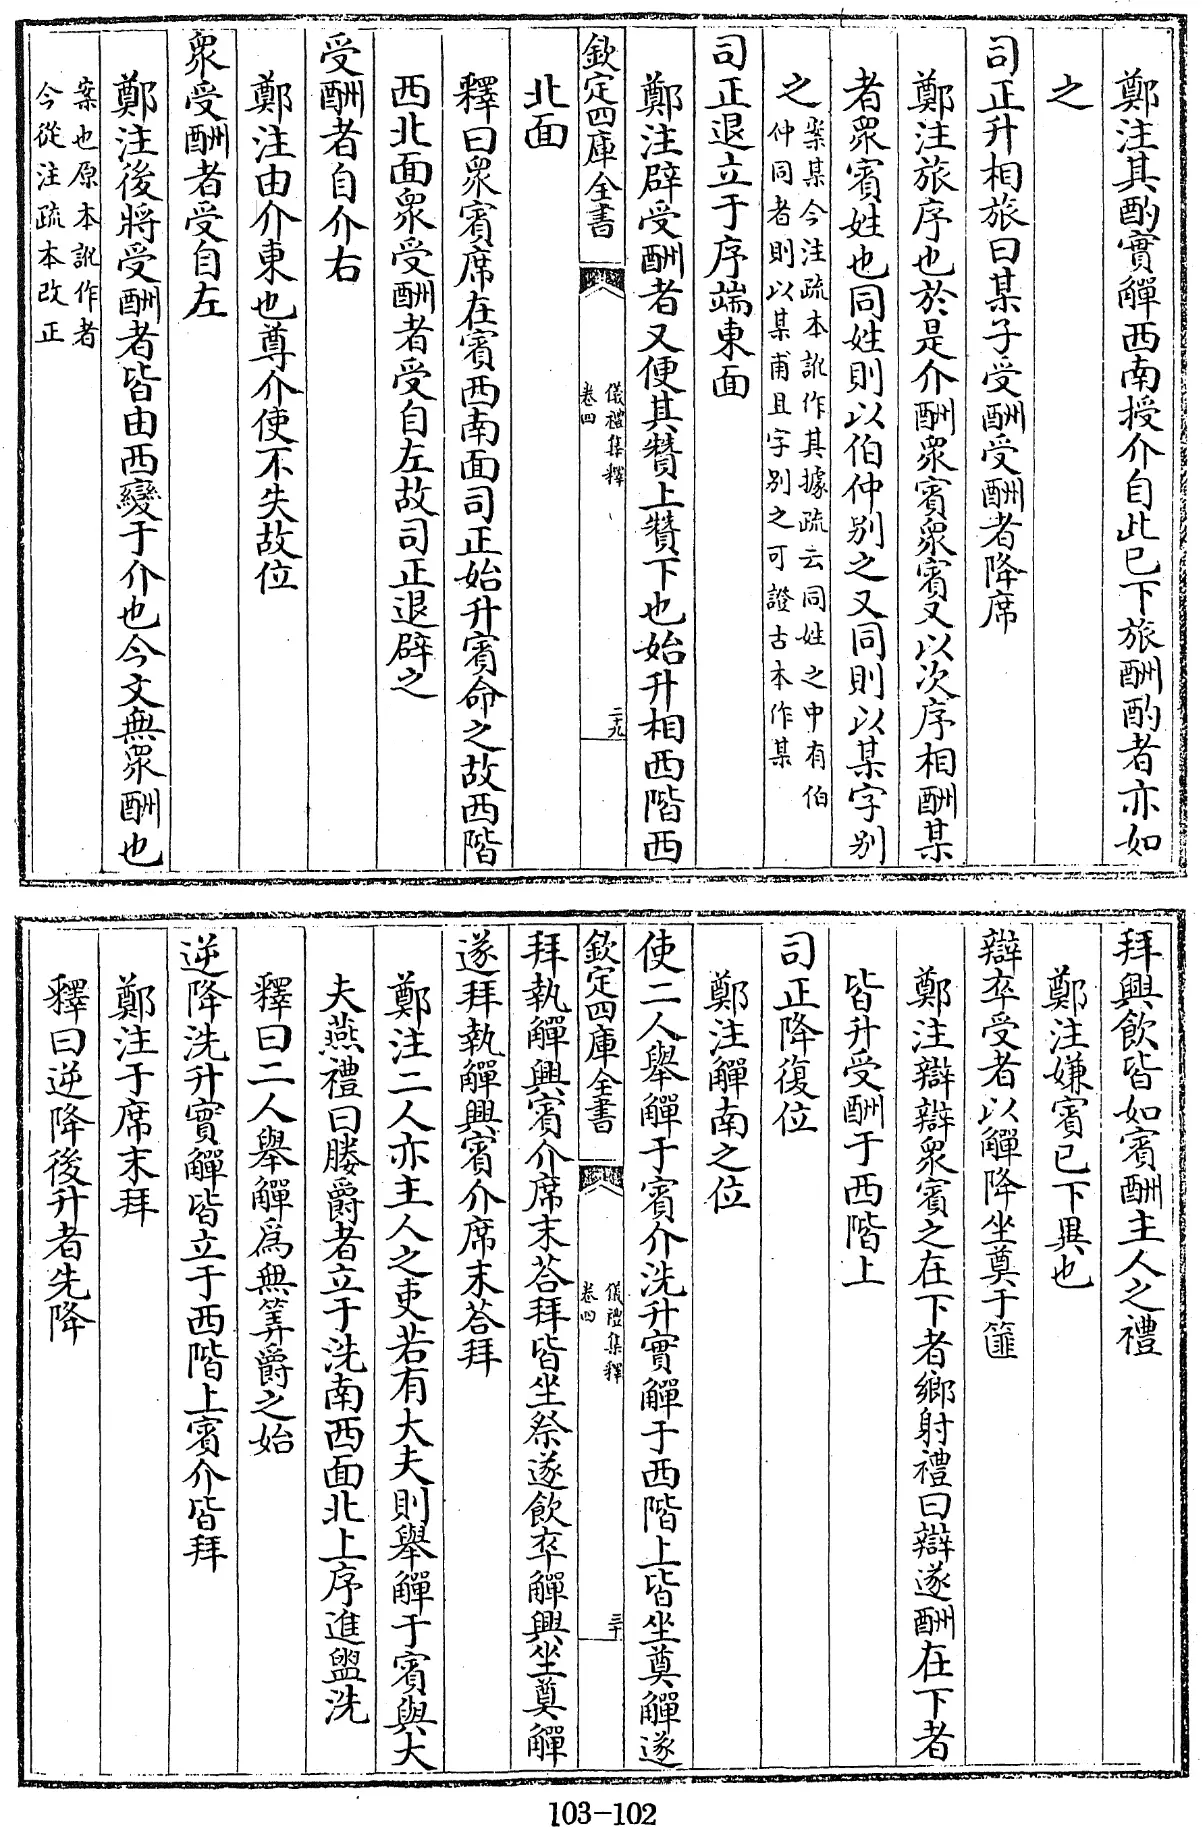 鄭注其酌實觶西南授介自此已下旅酬酌者亦如
之
司正升相旅曰某子受酬受酬者降席
鄭注旅序也於是介酬衆賓衆賓又以次序相酬某
者衆賓姓也同姓則以伯仲别之又同則以某字别
之案某今注疏本訛作其據疏云同姓之中有伯
仲同者則以某甫且字别之可證古本作某
司正退立于序端東面
鄭注辟受酬者又便其贊上贊下也始升相西階西
欽定四庫全書
儀禮集釋
卷四
二九
北面
釋曰衆賓席在賓西南面司正始升賓命之故西階
西北面衆受酬者受自左故司正退辟之
受酬者自介右
鄭注由介東也尊介使不失故位
衆受酬者受自左
鄭注後將受酬者皆由西變于介也今文無衆酬也
案也原本訛作者
今從注疏本改正
拜興飲皆如賓酬主人之禮
鄭注嫌賓已下異也
辯卒受者以觶降坐奠于篚
鄭注辯辯衆賓之在下者鄉射禮曰辯遂酬在下者
皆升受酬于西階上
司正降復位
鄭注觶南之位
使二人舉觶于賓介洗升實觶于西階上皆坐奠觶遂
欽定四庫全書
儀禮集釋
卷四
三十
拜執觶興賓介席末荅拜皆坐祭遂飲卒觶興坐奠觶
遂拜執觶興賓介席末荅拜
鄭注二人亦主人之吏若有大夫則舉觶于賓與大
夫燕禮曰媵爵者立于洗南西面北上序進盥洗
釋曰二人舉觶爲無筭爵之始
逆降洗升實觶皆立于西階上賓介皆拜
鄭注于席末拜
釋曰逆降後升者先降
103-102